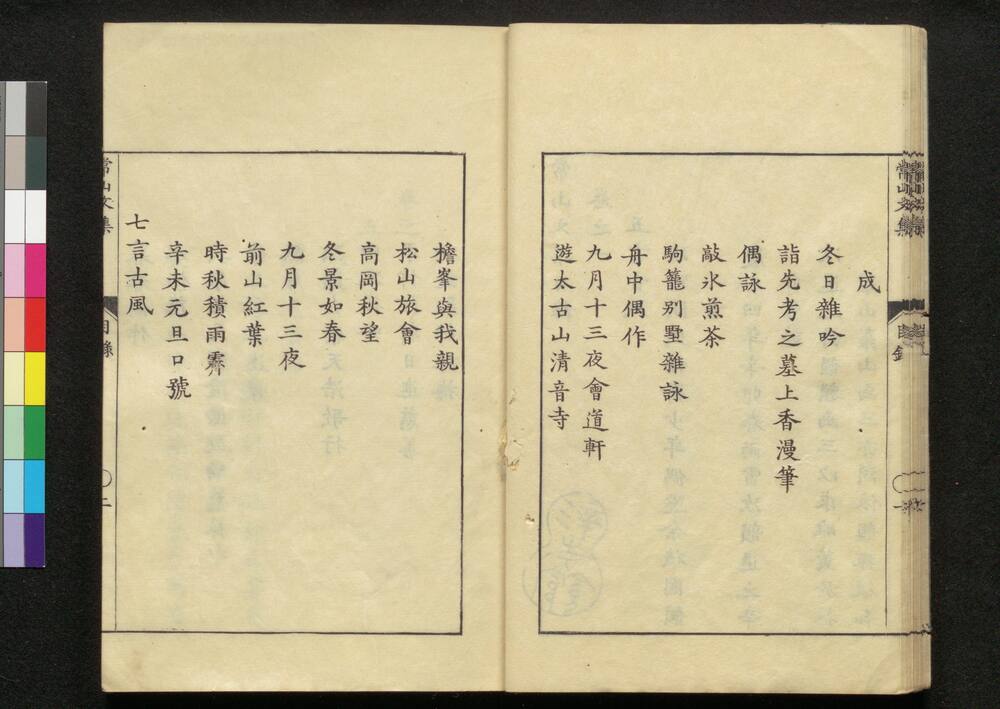 成
冬日雜吟
詣先考之墓上香漫筆
偶詠
敲氷煎茶
駒籠別墅雜詠
舟中偶作
九月十三夜會道軒
遊太古山清音寺
檐峯與我親
松山旅會
高岡秋望
冬景如春
九月十三夜
前山紅葉
時秋積雨霽
辛未元旦口號
七言古風
常山文集
目錄
二